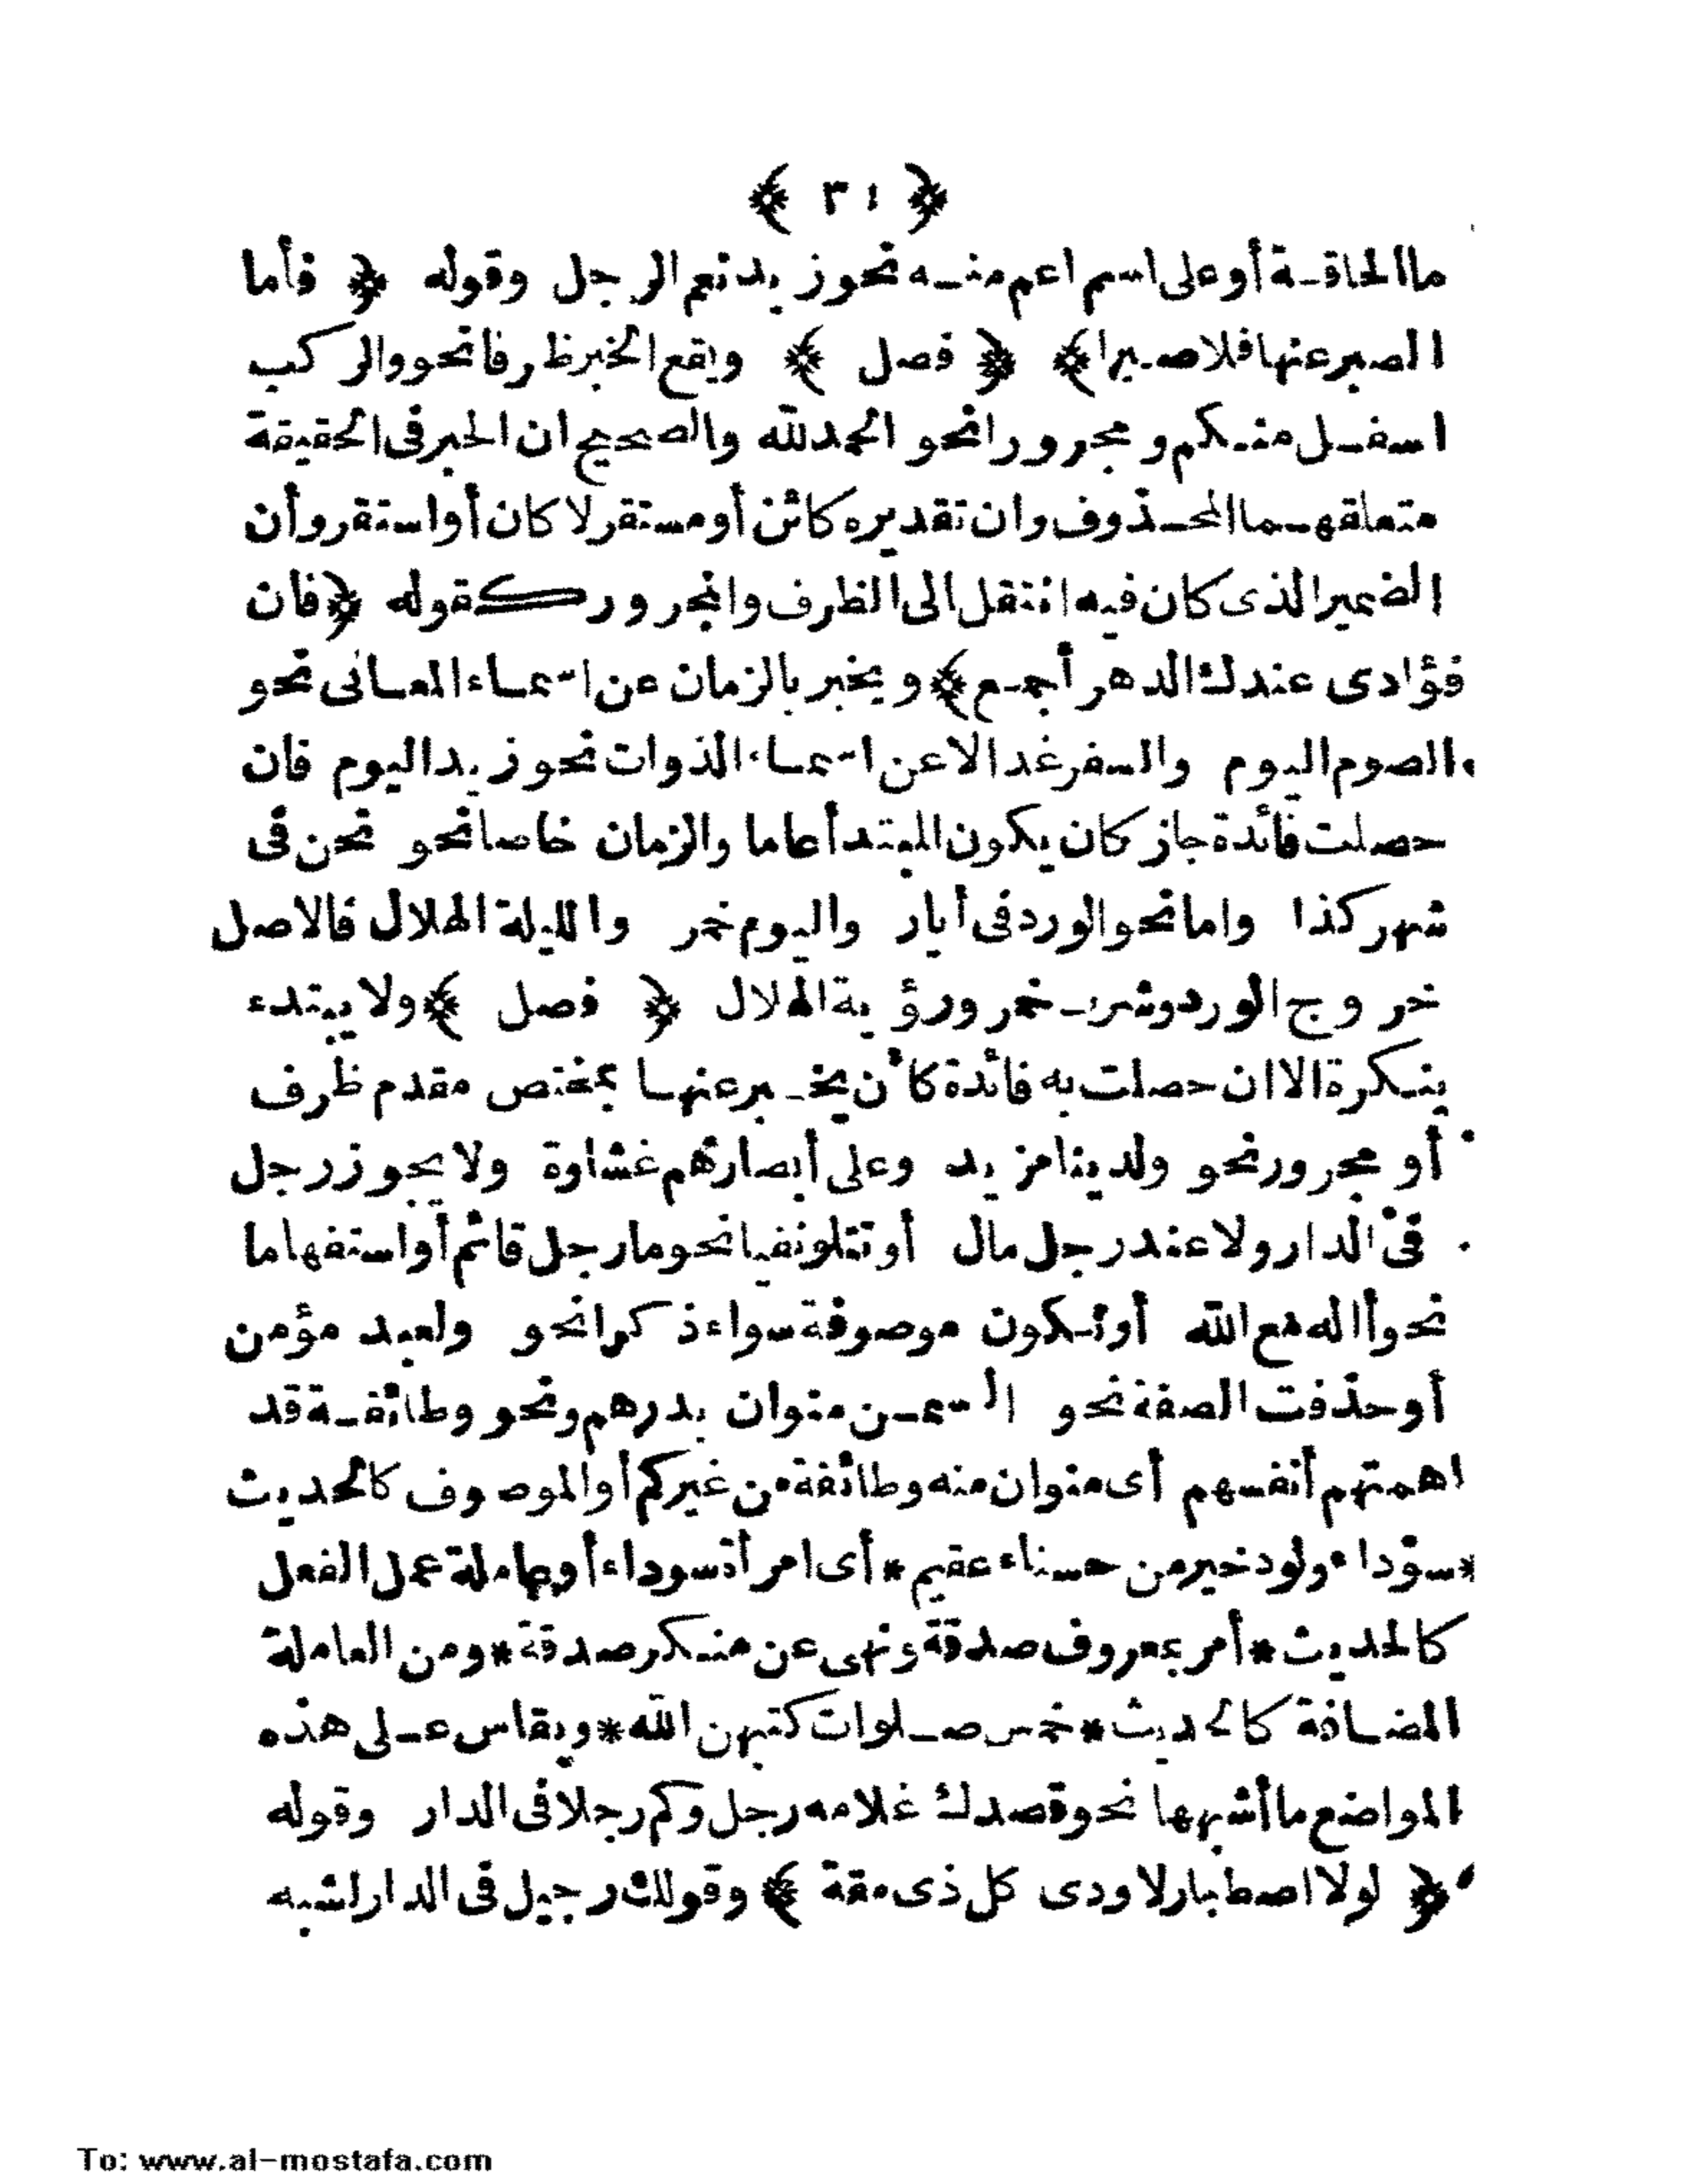 ﴿ ٣١ ﴾
ما الحاقة أو على اسم اعم منه نحو زيد نعم الرجل وقوله ﴿ فأما
الصبر عنها فلا صبرا ﴾ ﴿ فصل ﴾ ويقع الخبر ظرفا نحو والركب
اسفل منكم ومجرورا نحو الحمد لله والصحيح ان الخبر فى الحقيقة
متعلقهما المحذوف وان تقديره كائن أو مستقر لا كان أو استقر وأن
الضمير الذى كان فيه انتقل الى الظرف والمجرور كقوله ﴿ فان
فؤادى عندك الدهر أجمع ﴾ ويخبر بالزمان عن اسماء المعانى نحو
الصوم اليوم والسفر غدا لا عن اسماء الذوات نحو زيد اليوم فان
حصلت فائدة جاز كان يكون المبتدأ عاما والزمان خاصا نحو نحن فى
شهر كذا واما نحو الورد فى أيار واليوم خمر والليلة الهلال فالاصل
خروج الورد وشرب خمر ورؤية الهلال ﴿ فصل ﴾ ولا يبتدء
بنكرة الا ان حصلت به فائدة كأن يخبر عنها بمختص مقدم ظرف
أو مجرور نحو ولدينا مزيد وعلى أبصارهم غشاوة ولا يجوز رجل
فى الدار ولا عند رجل مال أو تتلو نفيا نحو ما رجل قائم أو استفهاما
نحو أاله مع الله أو تكون موصوفة سواء ذكرا نحو ولعبد مؤمن
أو حذفت الصفة نحو السمن منوان بدرهم ونحو وطائفة قد
اهمتهم أنفسهم أى منوان منه وطائفة من غيركم أو الموصوف كالحديث
*سوداء ولود خير من حسناء عقيم* أى امرأة سوداء أو عاملة عمل الفعل
كالحديث *أمر بمعروف صدقة ونهى عن منكر صدقة* ومن العاملة
المضافة كالحديث *خمس صلوات كتبهن الله* ويقاس على هذه
المواضع ما أشبهها نحو قصدك غلامه رجل وكم رجلا فى الدار وقوله
﴿ لولا اصطبار لاودى كل ذى مقة ﴾ وقولك رجيل فى الدار لشبه
To: www.al-mostafa.com